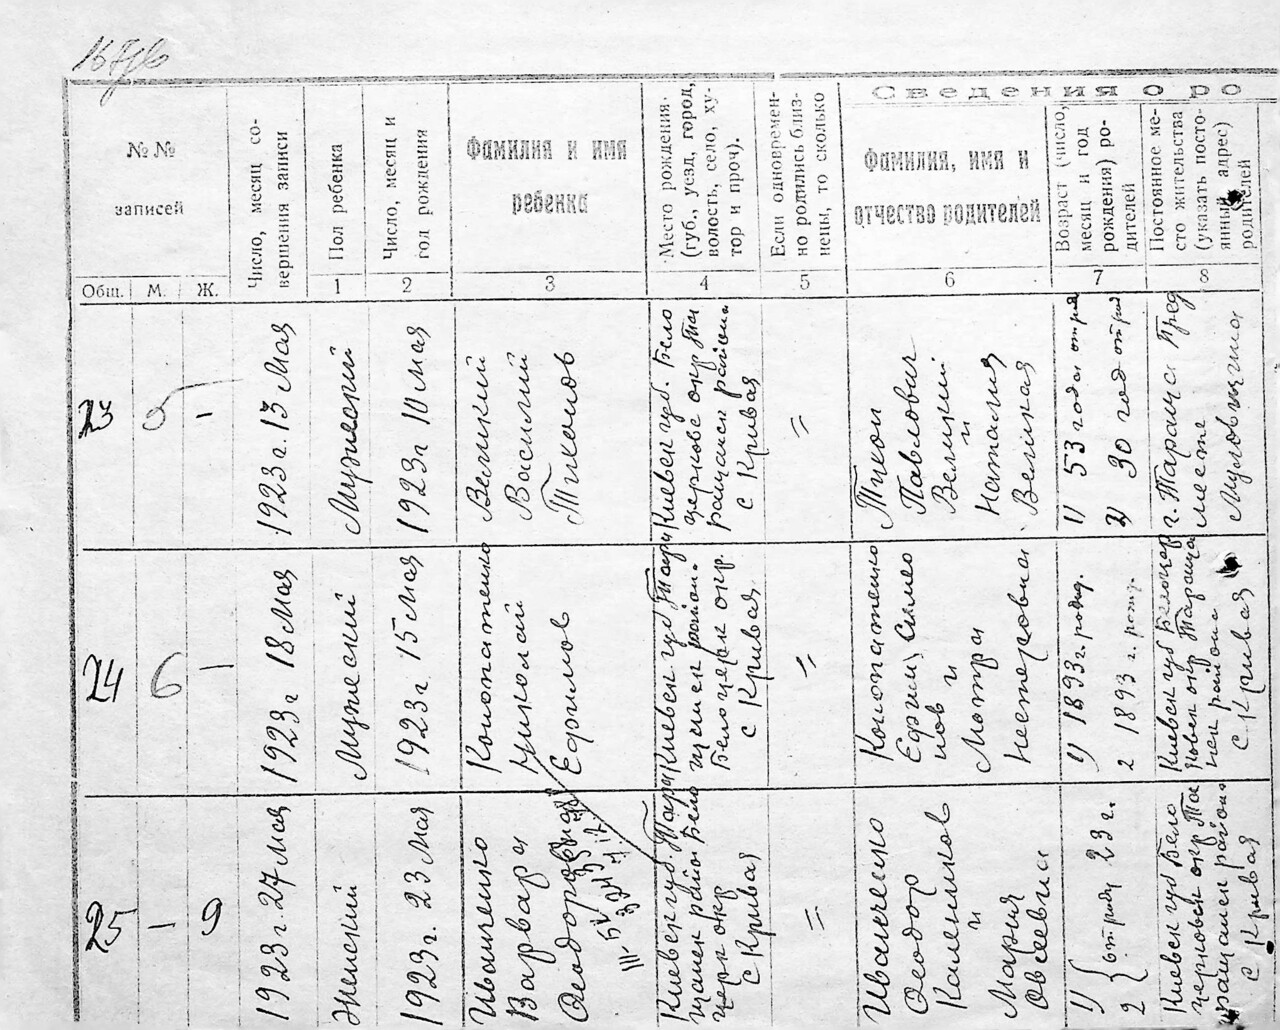 Сведения о ро
№ № записей
Общ.
М.
Ж.
Число, месяц со-
вершения записи
Пол ребенка
1
Число, месяц и
год рождения
2
Фамилия и имя
ребенка
3
Место рождения.
(губ., уезд, город,
волость, село, ху-
тор и проч).
4
Если одновремен-
но родились близ-
нецы, то сколько
5
Фамилия, имя и
отчество родителей
6
Возраст (число,
месяц и год
рождения) ро-
дителей
7
Постоянное ме-
сто жительства
(указать посто-
янный адрес)
родителей
8
23
5
-
1923 г. 13 Мая
Мужеский
1923 г 10 мая
Великий
Василий
Тихонов
Киевск губ. Бело
церков окр Та
ращанск района
с Кривая
=
Тихон
Павлович
Великий
и
Наталия
Великая
1) 53 года
2) 30 год
г. Тараща Пред
месте
24
6
-
1923 г 18 Мая
Мужеский
1923 г. 15 Мая
Конотенко
Николай
Ефимов
Киевск губ Тара
щанск район.
Белоцерк окр.
с Кривая
=
Конотенко
Ефим Симео
нов и
Мотря
1) 1893 г. рожд.
2 1893 г. рожд.
Киевск губ Белоцер
ковск окр Тараща
нск района
с Кривая
25
-
9
1923 г. 27 Мая
Женский
1923 г. 23 Мая
Иванченко
Варвара
Феодоровна
Киевск губ. Тара
щанск район Бело
церк окр
с Кривая
=
Иванченко
Феодор
Калеников
и
Мария
Овсеевна
1)
2
23 г.
Киевск губ Бело
церковск окр Та
ращанск район
с Кривая